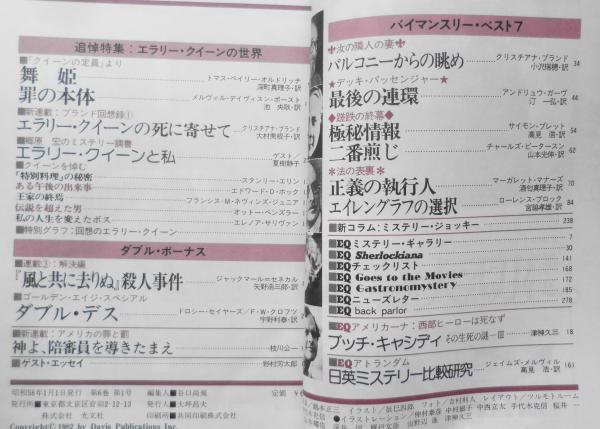 追悼特集：エラリー・クイーンの世界
■「クイーンの定員」より
舞　姫
トマス・ベイリー・オルドリッチ
深町真理子・訳
罪の本体
メルヴィル・デイヴィスン・ポースト
池 央耿・訳
■新連載：ブランド回想録①
エラリー・クイーンの死に寄せて
クリスチアナ・ブランド
大村美根子・訳
■郷原 宏のミステリー調書
エラリー・クイーンと私
ゲスト／
夏樹静子
■クイーンを悼む
「特別料理」の秘密
スタンリー・エリン
ある午後の出来事
エドワード・D・ホック
王家の終焉
フランシス・M・ネヴィンズ・ジュニア
伝説を超えた男
オットー・ペンズラー
私の人生を変えたボス
エレノア・サリヴァン
■特別グラフ：回想のエラリー・クイーン
ダブル・ボーナス
■連載③：解決編
『風と共に去りぬ』殺人事件
ジャックマール＝セネカル
矢野浩三郎・訳
■ゴールデン・エイジ・スペシャル
ダブル・デス
ドロシー・セイヤーズ／F・W・クロフツ
宇野利泰・訳
■新連載：アメリカの罪と罰
神よ、陪審員を導きたまえ
枝川公一
■ゲスト・エッセイ
野村芳太郎
昭和58年1月1日発行　第6巻 第1号
編集人■谷口尚規
定価
発行所■東京都文京区音羽2-12-13
発行人■大坪昌夫
株式会社 光文社
印刷所■共同印刷株式会社
Copyright© 1982 by Davis Publications Inc.
バイマンスリー・ベスト7
✚汝の隣人の妻✚
バルコニーからの眺め
クリスチアナ・ブランド
小沢瑞穂・訳
34
★デッキ・パッセンジャー★
最後の連環
アンドリュウ・ガーヴ
汀 一弘・訳
44
◆蹉跌の終幕◆
極秘情報
サイモン・ブレット
高見 浩・訳
54
二番煎じ
チャールズ・ピータースン
山本光伸・訳
62
＊法の表裏＊
正義の執行人
マーガレット・マナーズ
酒匂真理子・訳
70
エイレングラフの選択
ローレンス・ブロック
宮脇孝雄・訳
84
■新コラム：ミステリー・ジョッキー
238
■EQ ミステリー・ギャラリー
7
■EQ Sherlockiana
30
■EQ チェックリスト
141
■EQ Goes to the Movies
168
■EQ Gastronomystery
172
■EQ ニューズレター
185
■EQ back parlor
278
■EQアメリカーナ：西部ヒーローは死なず
ブッチ・キャシディ その生死の謎—Ⅲ
津神久三
18
■EQアトランダム
日英ミステリー比較研究
ジェイムズ・メルヴィル
高見 浩・訳
161